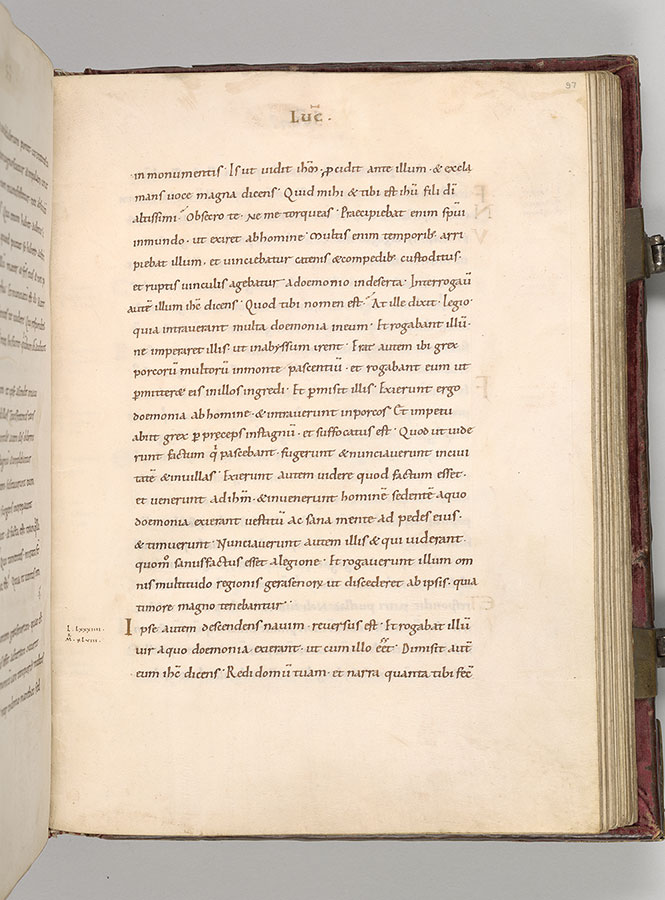 97
Luc̄.
in monumentis. Is ut vidit ih̄m, p̱cidit ante illum. & excla
mans voce magna dicens. Quid mihi & tibi est ih̄u fili dī
altissimi? Obsecro te. Ne me torqueas. Praecipiebat enim spūi
inmundo. ut exiret abhomine. Multis enim temporib; arri
piebat illum. et vinciebatur catenis &compedib; custoditus.
et ruptis vinculis agebatur ademonio indeserta. Interrogaū
autē illum ihc̄ dicens. Quod tibi nomen est? At ille dixit. legio.
quia intraverant multa doemonia ineum. Et rogabant illū.
ne imperaret illis. ut inabyssum irent. Erat autem ibi grex
porcorū multorū inmonte pascentiū. et rogabant eum ut
p̱mitteret eis inillos ingredi. Et p̱misit illis. Exierunt ergo
doemonia abhomine. & intraverunt inporcos. Et impetu
abiit grex p̱ p̄ceps instagnū. et suffocatus est. Quod ut vide
runt factum q̄ pascebant. fugerunt & nunciaverunt incivi
tatē &invillas. Exierunt autem videre quod factum esset.
et venerunt adih̄m. &invenerunt hominē sedentē aquo
doemonia exierant vestitū ac sana mente ad pedes eius.
& timuerunt. Nunciaverunt autem illis & qui viderant.
quom̄ sanusfactus esset alegione. Et rogaverunt illum om
nis multitudo regionis gerasenoꝝ ut discederet abipsis. quia
timore magno tenebantur.
I. lxxxiiii.
M. xlviii.
Ipse autem descendens navim. reversus est. Et rogabat illū
vir aquo doemonia exierant. ut cum illo eēt. Dimisit autē
eum ihc̄ dicens. Redi domū tuam. et narra quanta tibi fec̄